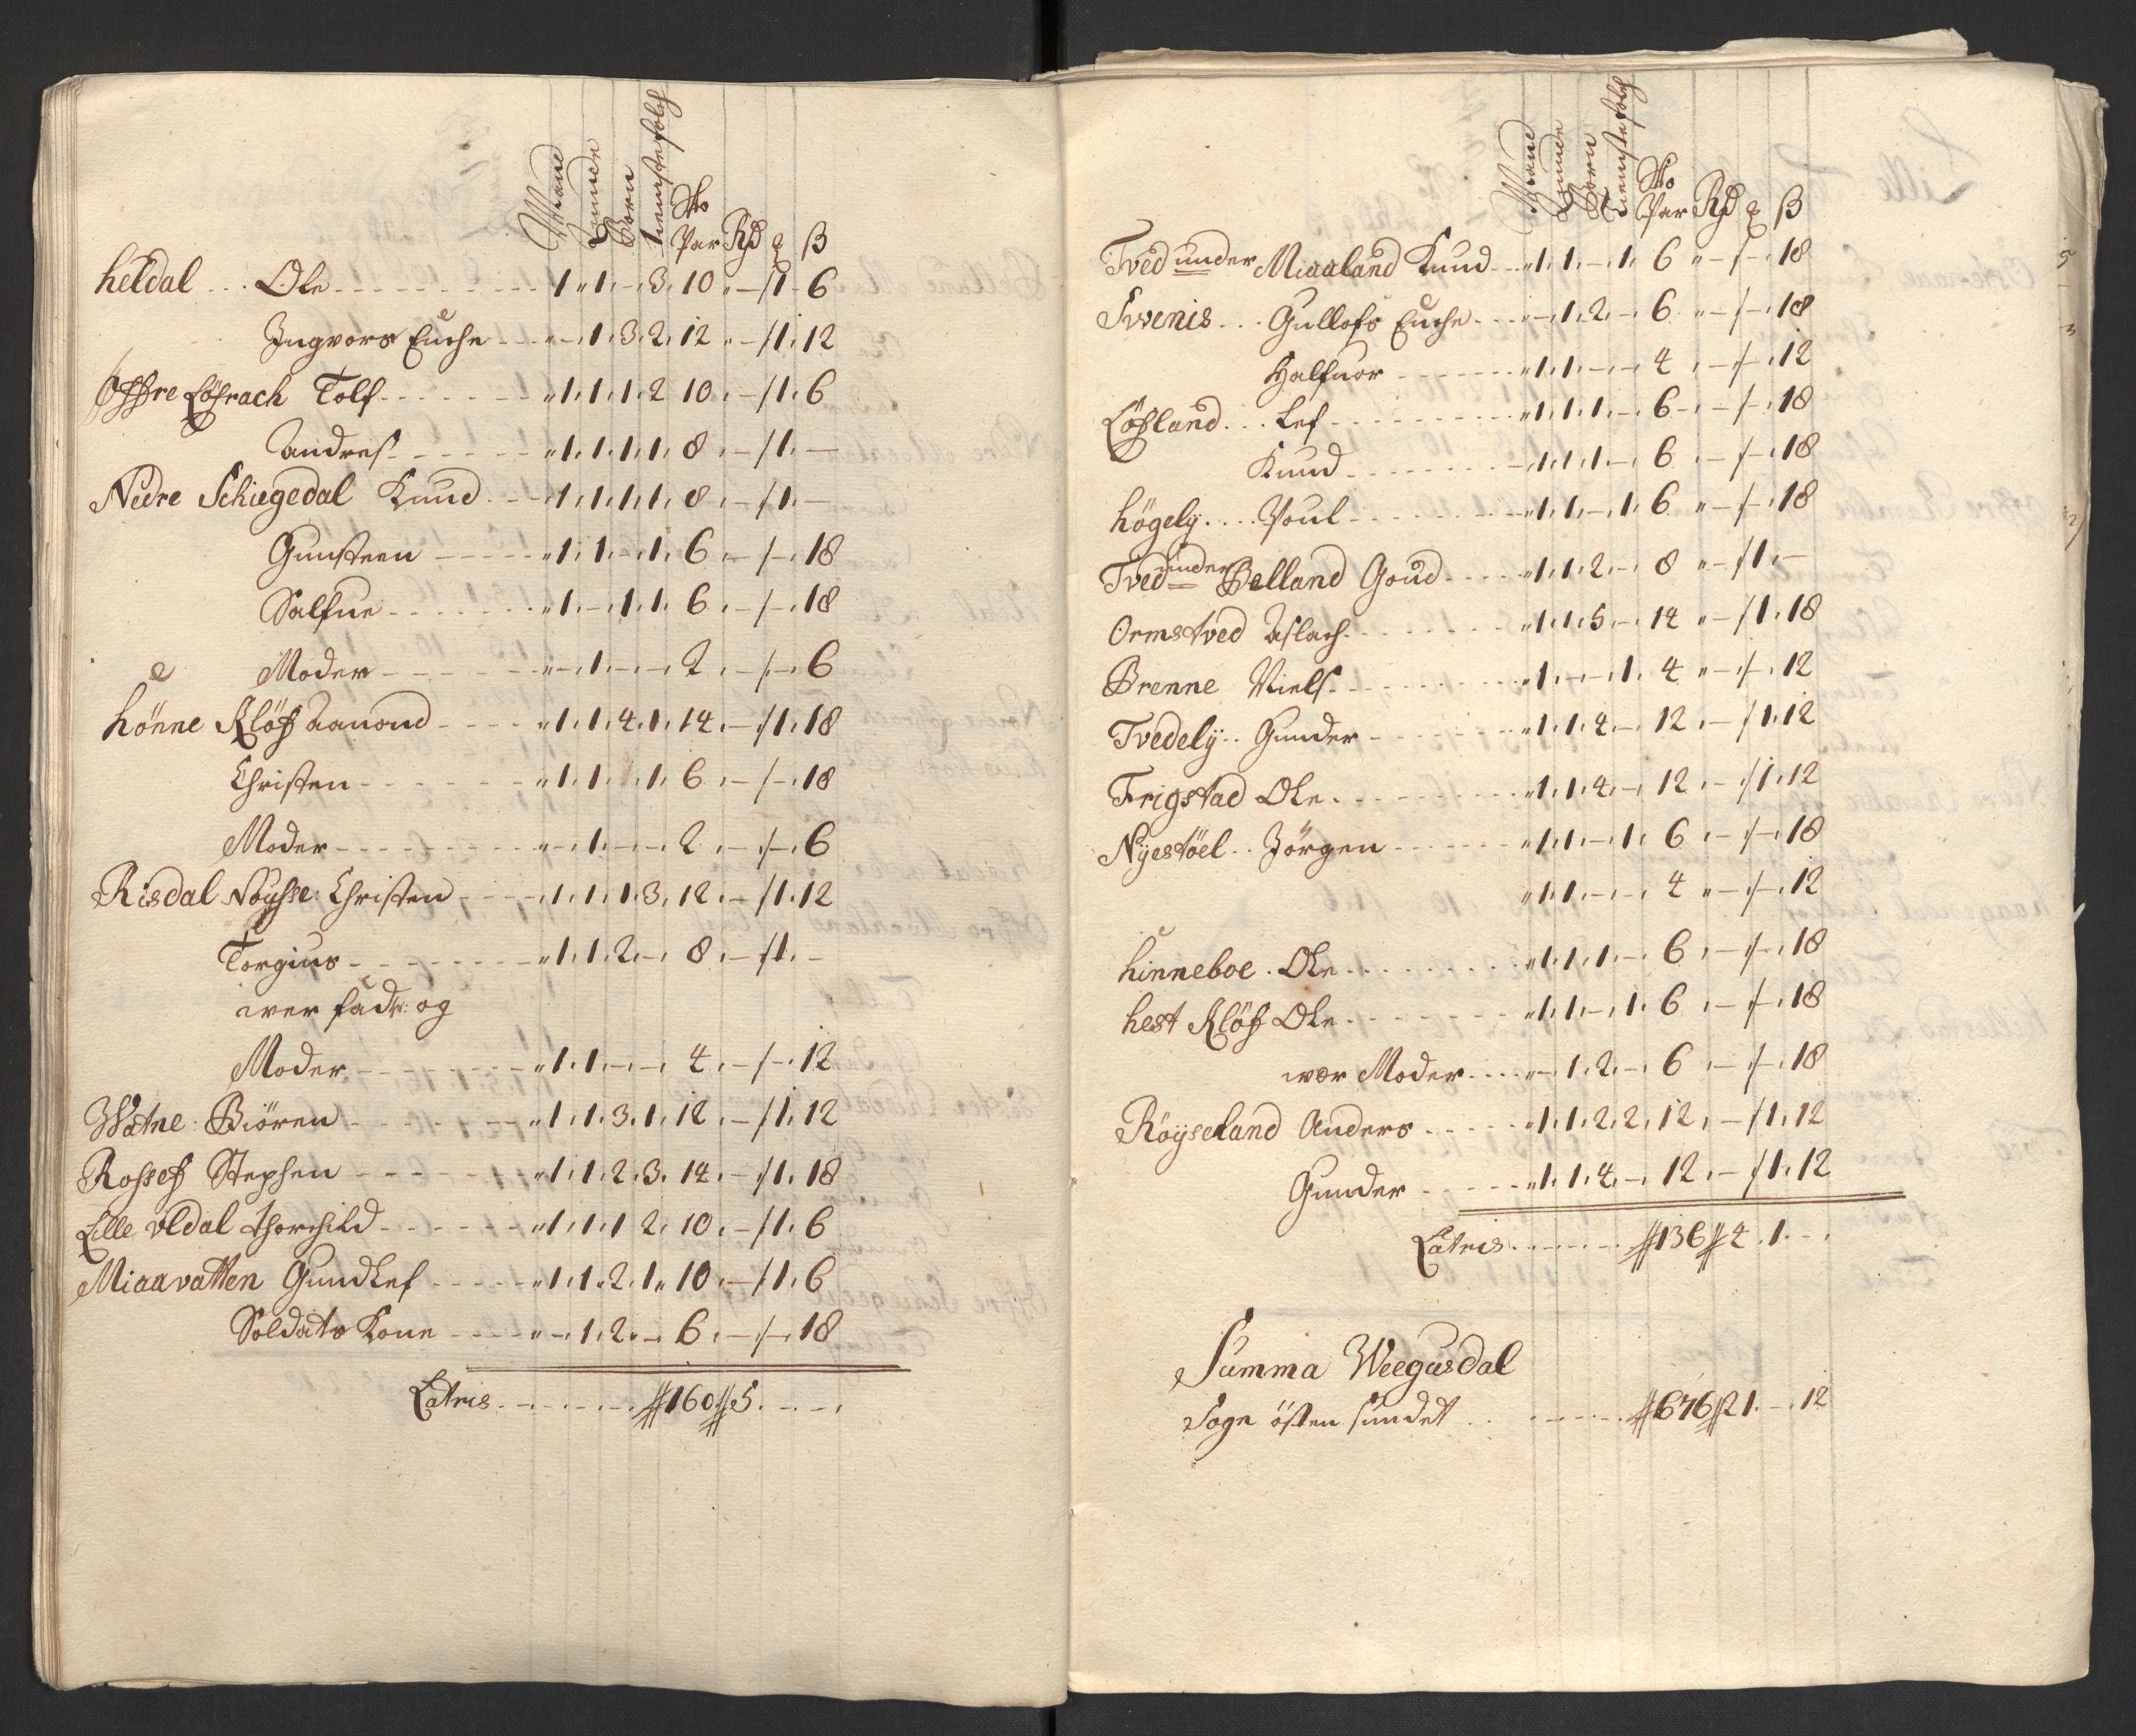 Mand Quinde Börn Tienistefolch Sko Par Rd q ß
heldal ... Ole - - - 1 " 1 . - . 3 . 10 . - / 1 - 6
Ingvors Enche - - - " - . 1 . 3 . 2 . 12 . - / 1 . 12
Öffre Löfrach Tolf - - - " 1 . 1 . 1 . 2 10 . - / 1 . 6
Andres - - - " 1 . 1 . 1 . 1 . 8 . - / 1 . -
Nedre Schiegedal Knud - - - 1 . 1 . 1 . 1 . 8 . - / 1 . -
Gunsteen - - - " 1 . 1 . - . 1 . 6 . - / - . 18
Salfue - - - " 1 . - . 1 . 1 . 6 . - / - . 18
Moder - - - " - . 1 . - . - . 2 . - / - . 6
hönne Klöf Aanond - - - " 1 . 1 . 4 . 1 . 14 . - / 1 . 18
Christen - - - " 1 . 1 . 1 . 6 . - / - . 18
Moder - - - " - . 1 . - . - . 2 . - / - . 6
Risdal Nöysse: Christen - - - 1 . 1 . 1 . 3 . 12 . - / 1 . 12
Torgius - - - " 1 . 1 . 2 . - . 8 . - / 1 . -
wer fadr: og
Moder - - - " 1 . 1 . - . - . 4 . - / - . 12
Watne: Biören - - - 1 . 1 . 3 . 1 . 12 . - / 1 . 12
Rossef Stephen - - - " 1 . 1 . 2 . 3 . 14 . - / 1 . 18
Lille vldal thorchild - - - " 1 . 1 . 1 2 . 10 . - / 1 . 6
Miaavatten Gundlef - - - " 1 . 1 . 2 . 1 " 10 . - / 1 . 6
Soldats Kone - - - " - . 1 . 2 . - 6 . - / - . 18
Latris - - - 160 5 . - - .
Mand Quinde Börn Tienistefolch Sko Par Rd q ß
Tved under Miaaland Knud - - " 1 . 1 . - . 1 . 6 " - / - . 18
Svenis ... Gullofs Enche - - - " - . 1 . 2 . - 6 " - / - . 18
Halfuor - - - " 1 . 1 . - . - 4 . - / - . 12
Löfland ... Lef - - - " 1 . 1 . 1 . - 6 - . - / - . 18
Knud - - - 1 . 1 . 1 . - . 6 . - / - . 18
högely .... Poul - - - " 1 . 1 . - . 1 . 6 " - / - . 18
Tved under Belland Goud - - - " 1 . 1 . 2 . - . 8 " - / 1 . -
Ormstved Aslach - - - " 1 . 1 . 5 . - . 14 " - / 1 . 18
Brenne Niels - - - " 1 . - . - . 1 . 4 " - / - . 12
Tvedely .. Gunder - - - " 1 . 1 . 4 . - . 12 . - / 1 . 12
Frigstad Ole - - - " 1 . 1 . 4 . - . 12 . - / 1 . 12
Nyestöel .. Jörgen - - - " 1 . 1 . - . 1 . 6 . - / - . 18
" 1 . 1 . - . - . 4 " - / - . 12
hinneboe . Ole - - - " 1 . 1 . 1 . - . 6 . - / - . 18
hest Klöf Ole - - - " 1 . 1 . - . 1 . 6 . - / - . 18
wor Moder - - - " - . 1 . 2 . - . 6 . - / - . 18
Röyseland Anders - - - 1 . 1 . 2 . 2 . 12 . - / 1 . 12
Gunder - - - " 1 . 1 . 4 . - . 12 . - / 1 . 12
Latris - - - 136 4 . 1 . - .
Summa Weegusdal
Sogn östen sundet - - - 676 21 . - . 12